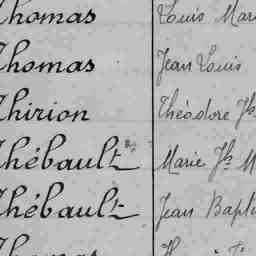 Thomas Louis Mari
Thomas Jean Louis
Thirion Théodore Jh
Thébault Marie Jh M
Thébault Jean Bapti
Thomas